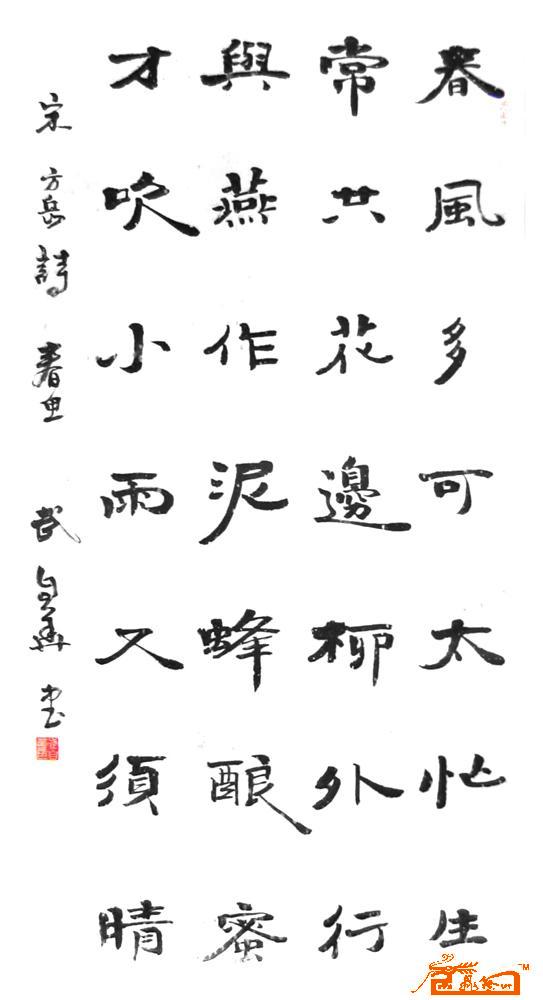 春風多可太忙生
常共花邊柳外行
與燕作泥蜂酿蜜
才吹小雨又須晴
宋方岳詩 春 武 书